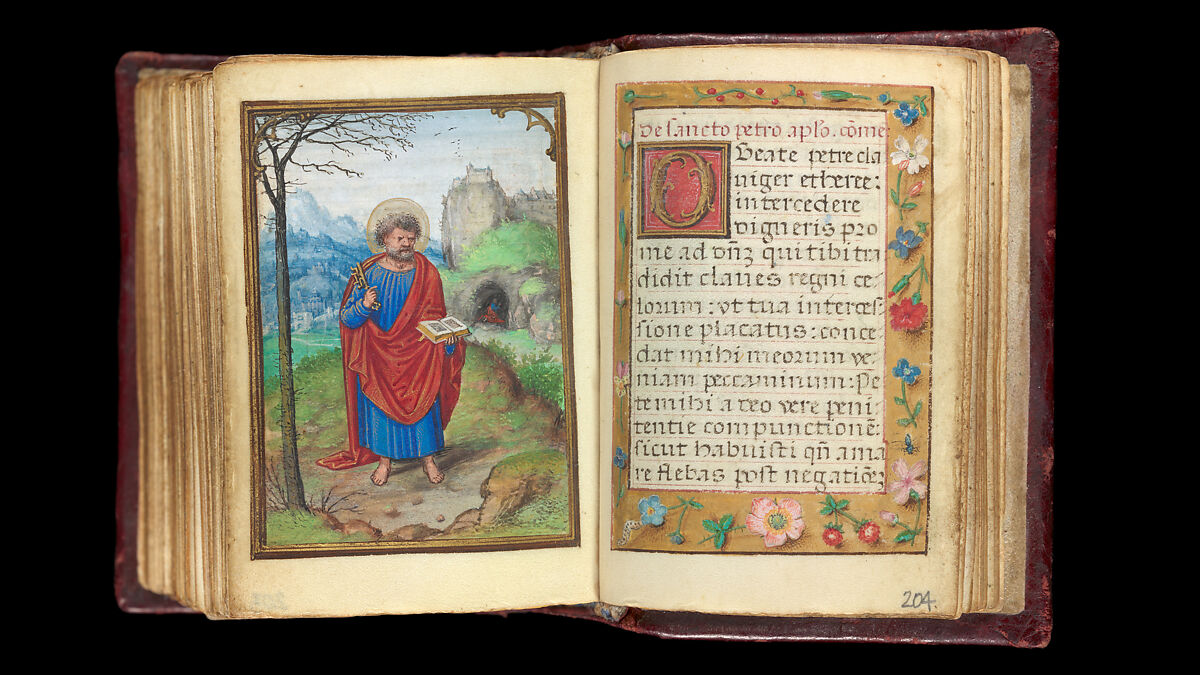 De sancto petro aplo. come
O Beate petre cla
niger etheree:
intercedere
digneris pro
me ad dnz qui tibi tra
didit claves regni ce-
lorum: ut tua interces-
sione placatus: conce-
dat mihi meorum ve-
niam peccaminum: Pe
te mihi a deo vere peni-
tentie compunctione:
sicut habuisti qn ama
re flebas post negatioez
204.